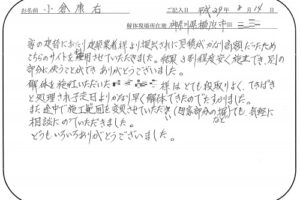 お名前 小倉康右 ご記入日 平成29年8月14日
解体現場所在地 神奈川県横浜市
家の建替にあたり建築業者様より提示された見積がかなり高額だったため
こちらのサイトを利用させていただきました。結果3割程度安く施工でき、別の
部分に使うことができ ありがとうございました。
解体を施工いただいた 様はとても段取りよく、てきぱき
と処理され予定日よりかなり早く解体できたのでたすかりました。
また途中で施工範囲を変更させていただき(田舎部分の塀)でも 気軽に
など
相談にのっていただきました。
どうもいろいろありがとうございました。